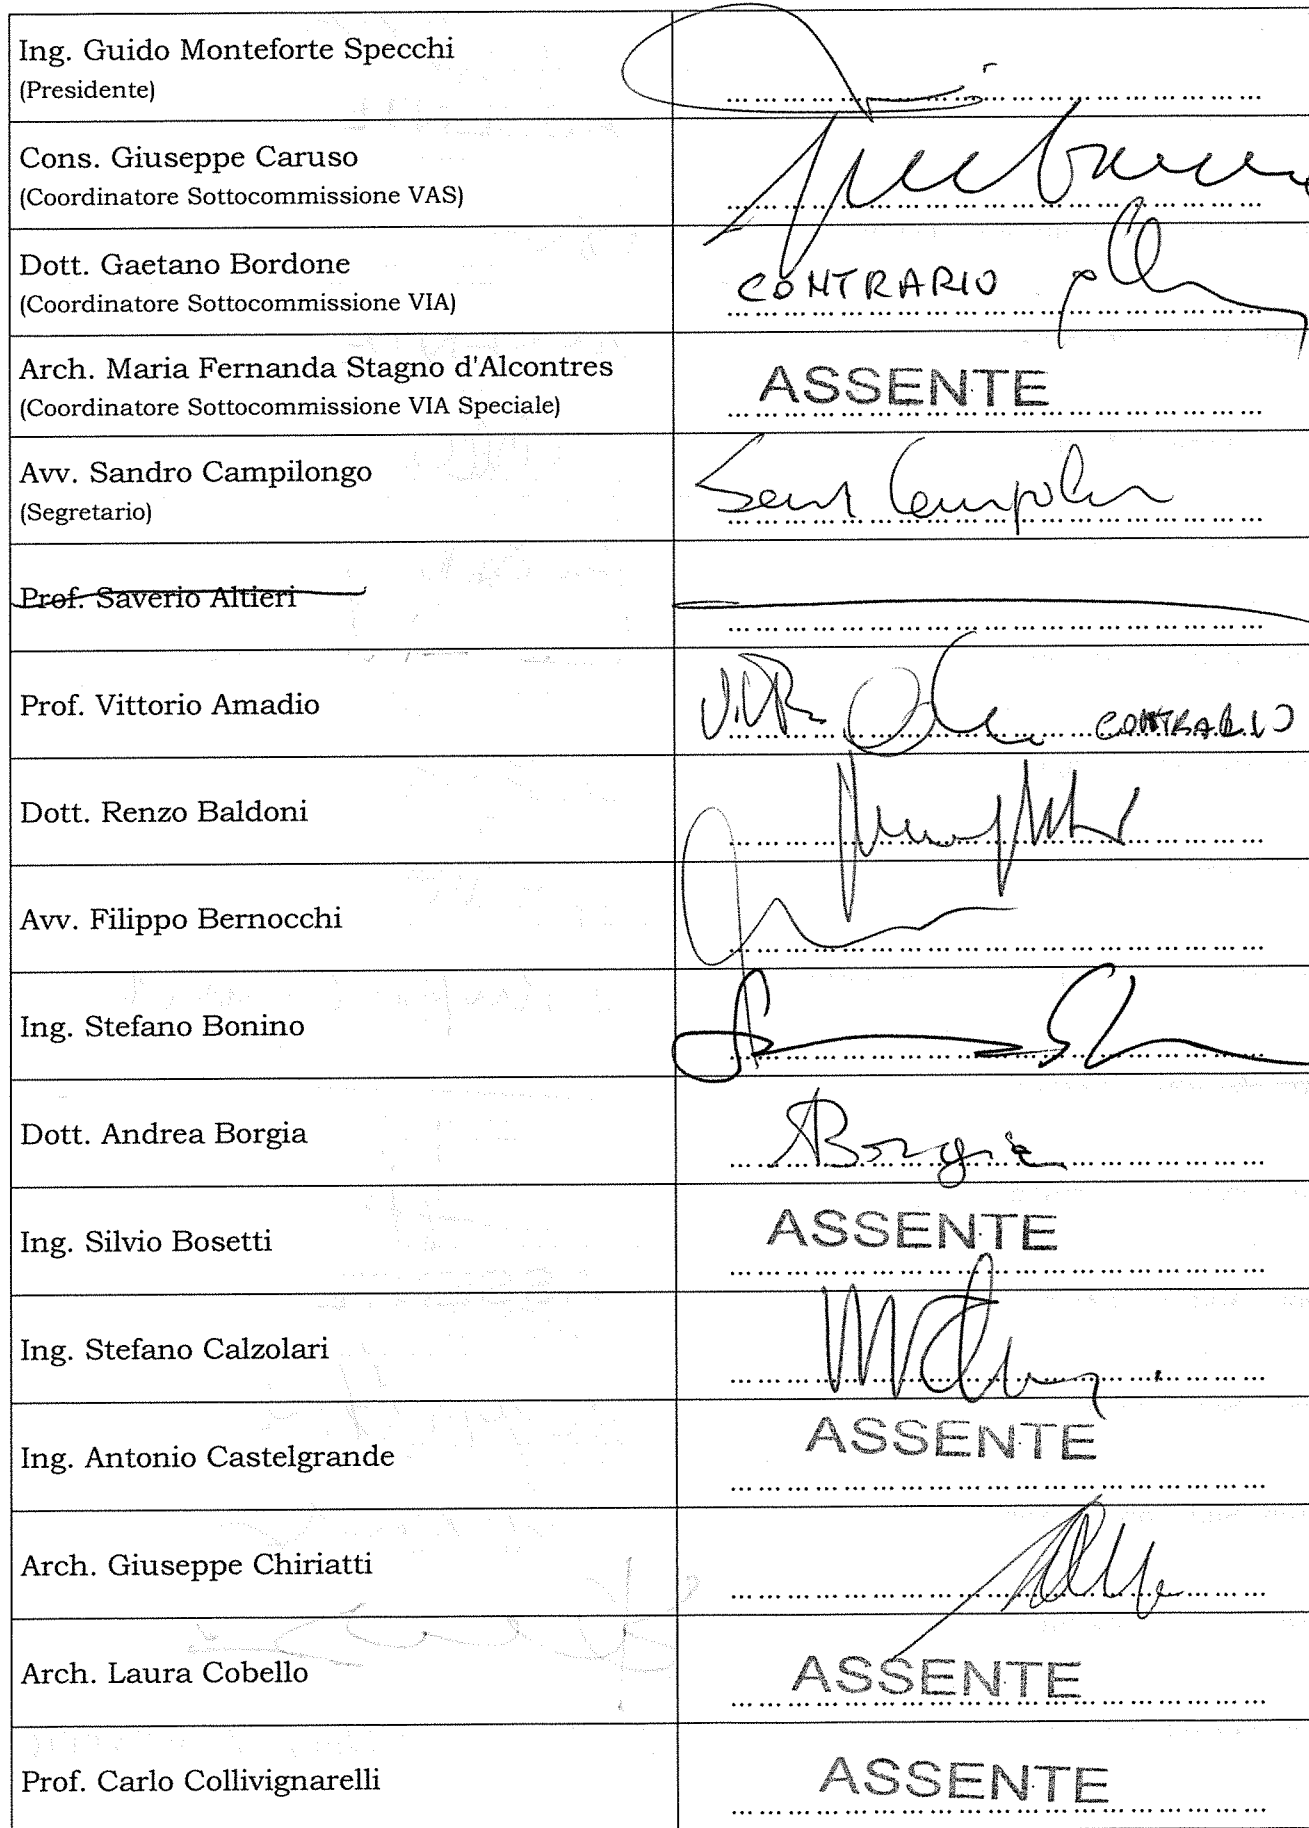 Ing. Guido Monteforte Specchi
(Presidente)
Cons. Giuseppe Caruso
(Coordinatore Sottocommissione VAS)
Dott. Gaetano Bordone
(Coordinatore Sottocommissione VIA)
CONTRARIO
Arch. Maria Fernanda Stagno d'Alcontres
(Coordinatore Sottocommissione VIA Speciale)
ASSENTE
Avv. Sandro Campilongo
(Segretario)
Prof. Saverio Altieri
Prof. Vittorio Amadio
CONTRARIO
Dott. Renzo Baldoni
Avv. Filippo Bernocchi
Ing. Stefano Bonino
Dott. Andrea Borgia
ABorgia
Ing. Silvio Bosetti
ASSENTE
Ing. Stefano Calzolari
Ing. Antonio Castelgrande
ASSENTE
Arch. Giuseppe Chiriatti
Arch. Laura Cobello
ASSENTE
Prof. Carlo Collivignarelli
ASSENTE